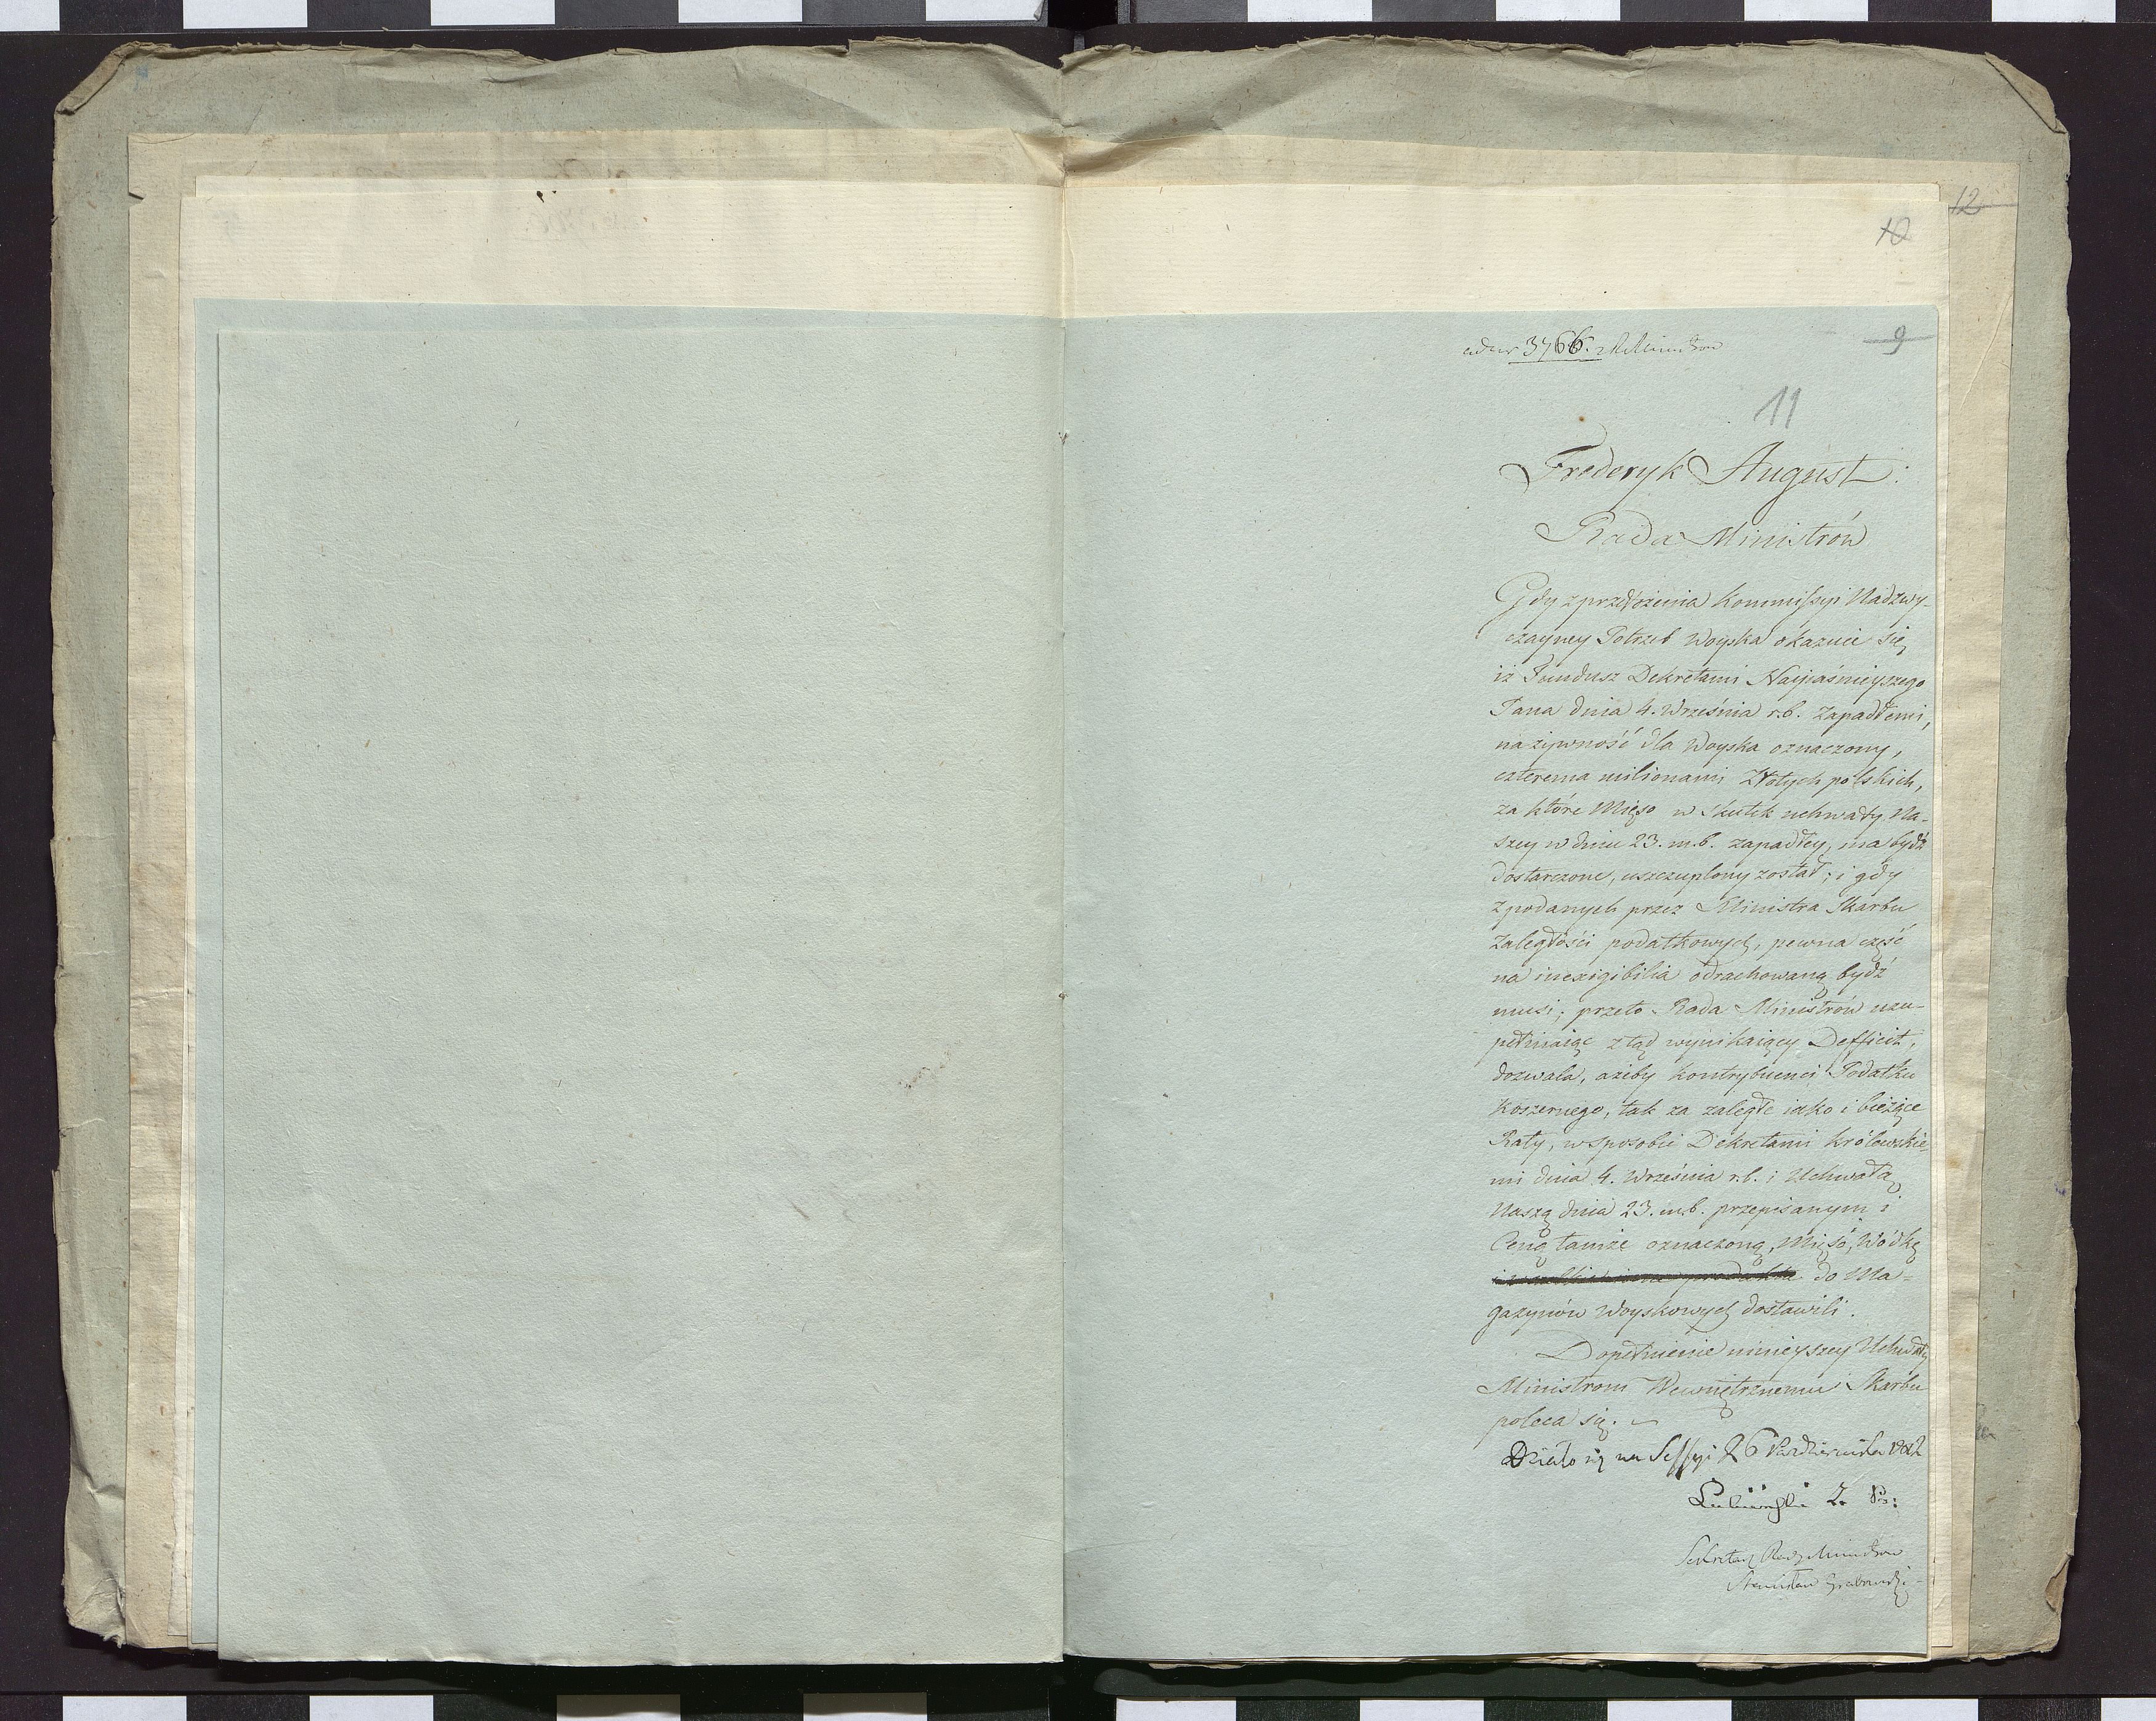 12
10
9
ad nr 3766. R Ministrow
11
Frederyk August:
Rada Ministrów
Gdy z przełożenia Kommissyi Nadzwy-
czayney Potrzeb Woyska okazuie się,
iż Fundusz Dekretami Nayjaśnieyszego
Pana dnia 4. Września r.b. zapadłemi,
na żywność dla Woyska oznaczony,
czterema milionami Złotych polskich,
za które Mięso w skutek uchwały Na-
szey w dniu 23. m.b. zapadłey, ma bydź
dostarczone, uszczuplony został; i gdy
z podanych przez Ministra Skarbu
Zaległości podatkowych, pewna część
na inexigibilia odrachowaną bydź
musi; przeto Rada Ministrów uzu-
pełniaiąc ztąd wynikaiący Defficit,
dozwala, ażeby kontrybuenci Podatku
Koszernego, tak za zaległe iako i bieżące
Raty, w sposobie Dekretami Królewskie-
mi dnia 4. Września r.b. i Uchwałą
Naszą dnia 23. m.b. przepisanym i
Ceną tamże oznaczoną, Mięso, Wódkę
i wszelkie inne produkta do Ma-
gazynów Woyskowych dostawili.
Dopełnienie ninieyszey Uchwały
Ministrom Wewnętrznemu i Skarbu
poleca się.
Działo się na Sessyi 26 Października 1812
Lubieński Z. Pr:
Sekretarz Rady Ministrow
Stanisław Grabowski